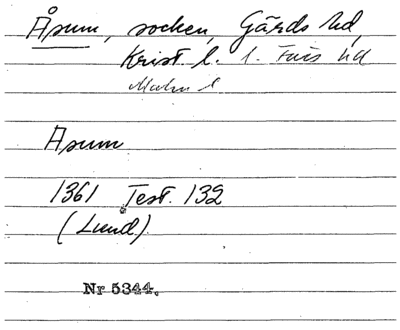 Åsum, socken, Gärds hd,
Krist. l. l. Färs hd
Malm l
Asum
1361 Test. 132
(Lund)
Nr 5344.